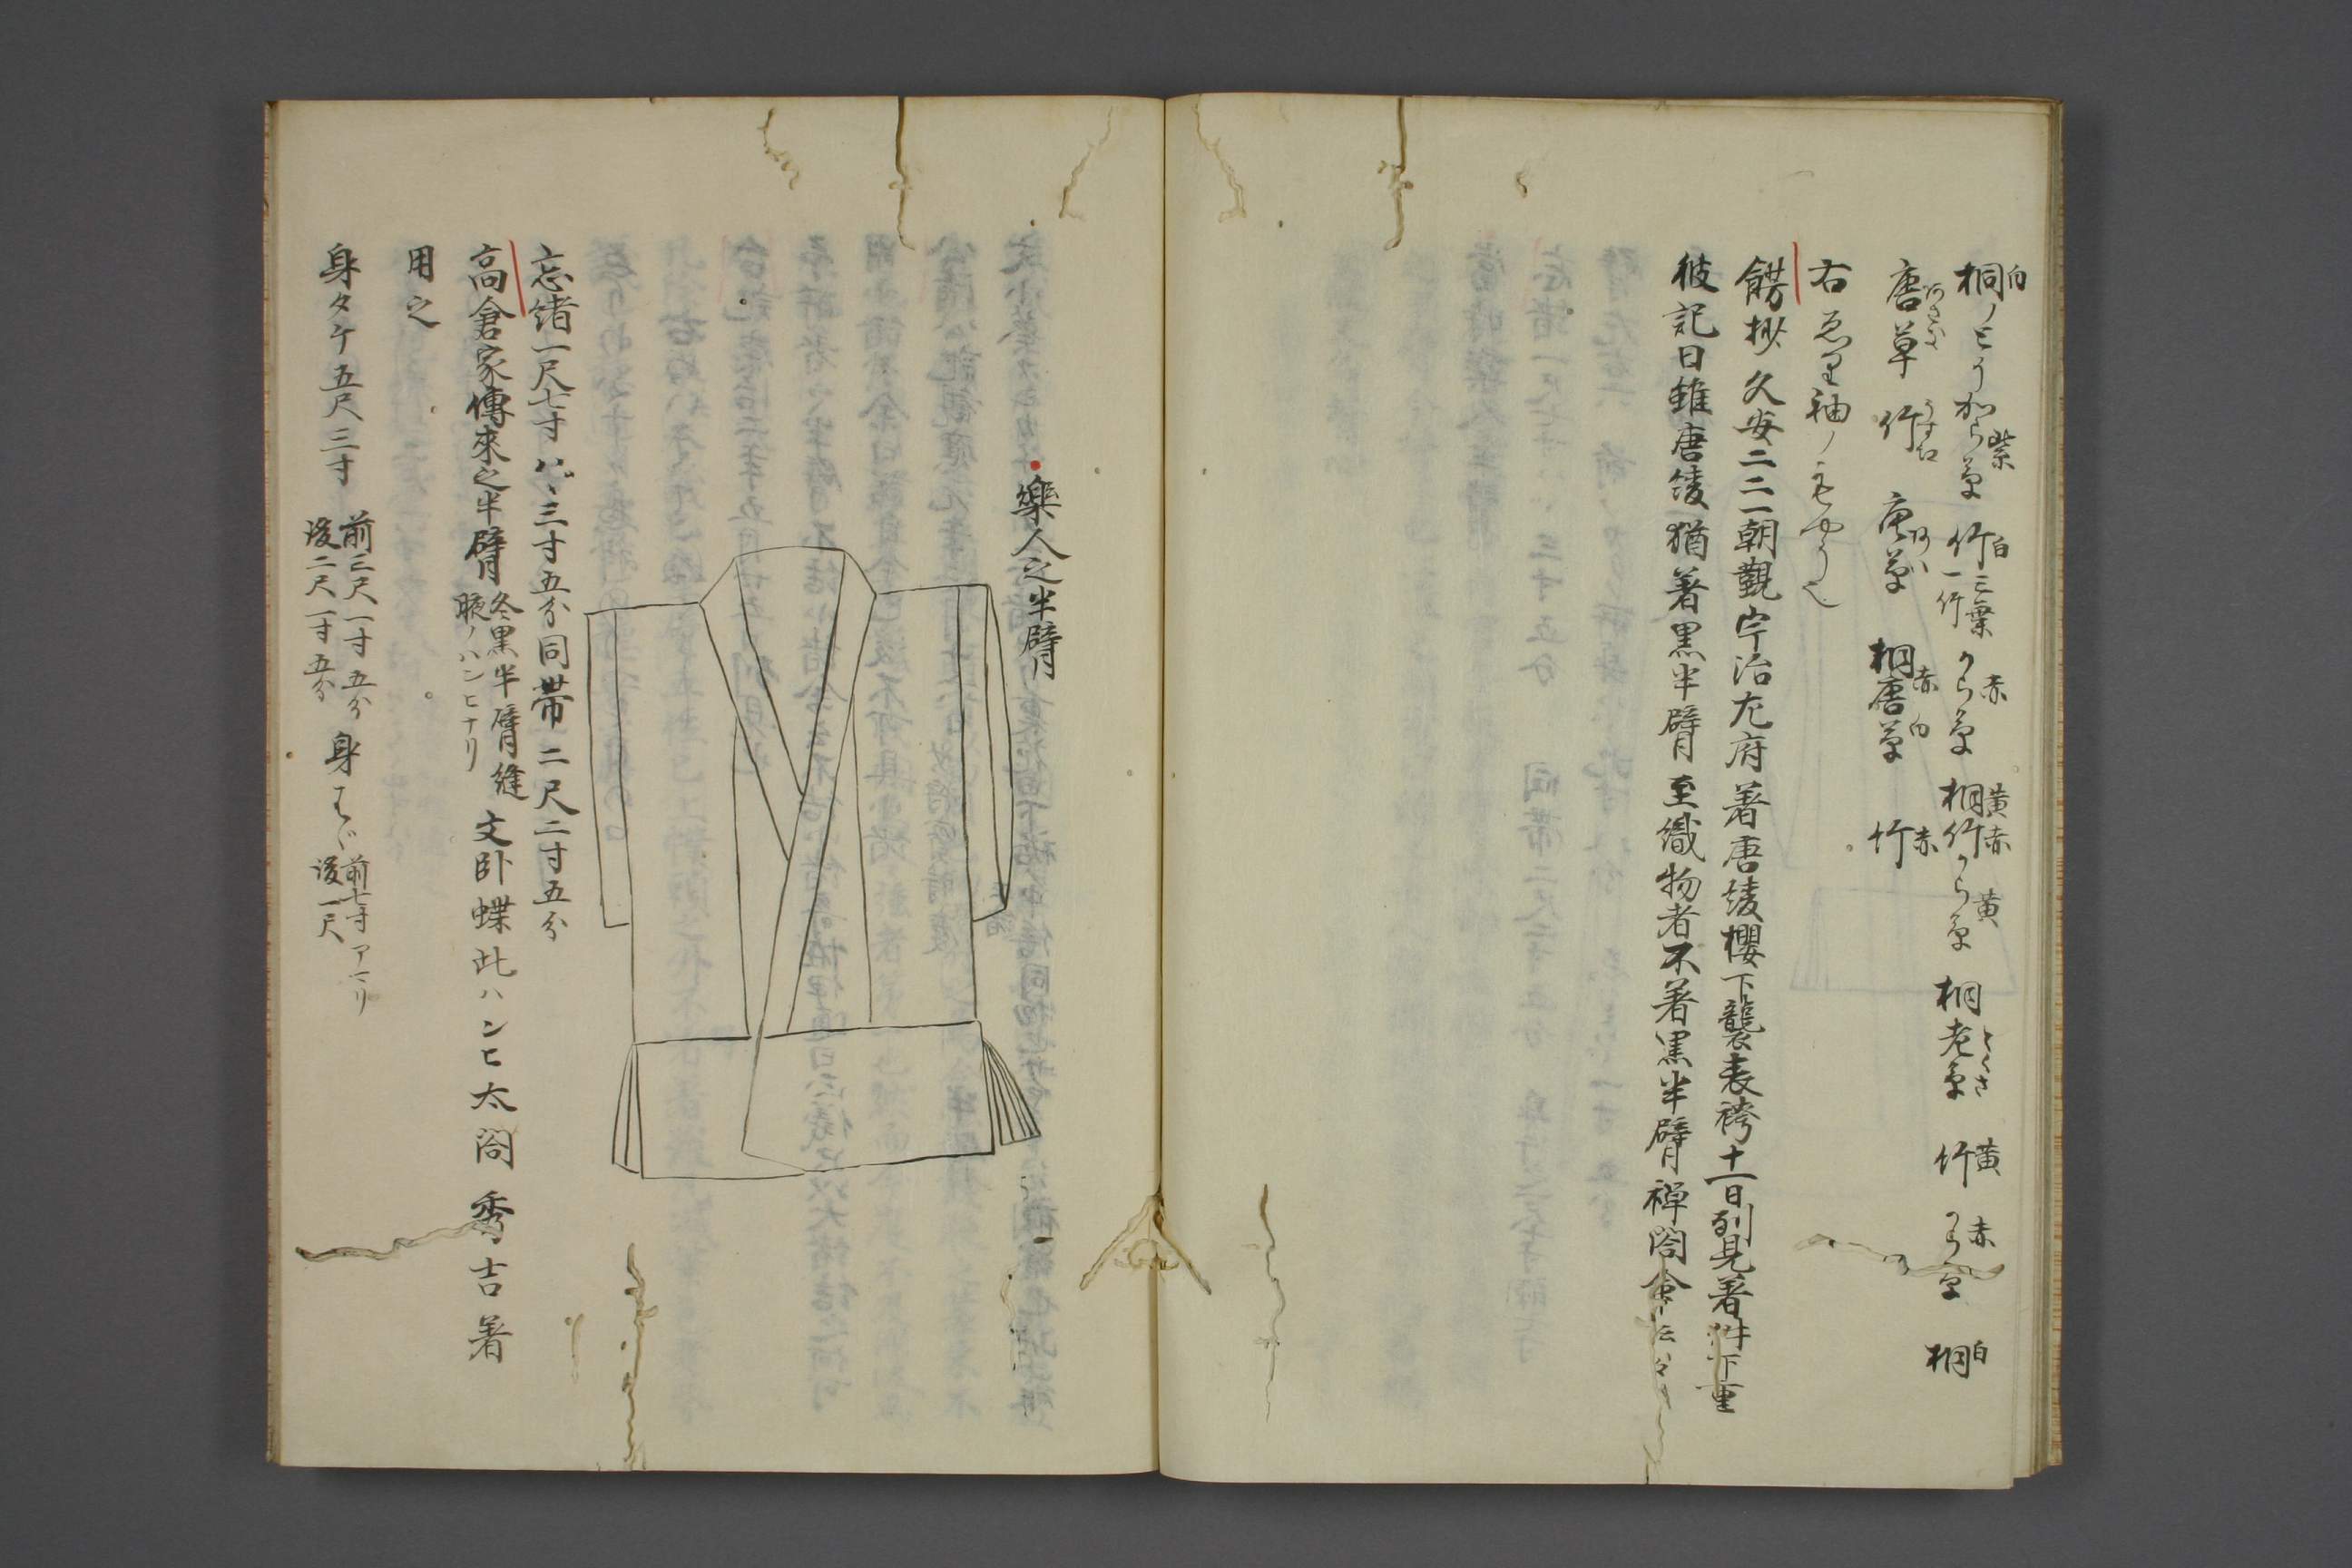 桐ノとうから草 竹三葉一竹 から草 桐竹から草 桐 老草 竹 から草 桐
白 紫 白 赤 黄 赤 黄 とくさ 黄 赤 白
唐草 竹 唐草 桐唐草 竹
赤 白 赤
右ゑり袖ノもやう也
餝抄久安二二一朝覲宇治左府著唐綾櫻下襲表袴十一日列見著件下重
彼記曰雖唐綾猶著黒半臂至織物者不著黒半臂禅閤命云々
樂人之半臂
忘緒一尺七寸ハヾ三寸五分同帯二尺二寸五分
高倉家傳來之半臂 冬黒半臂縫
腋ノハンヒナリ 文臥蝶此ハンヒ太閤秀吉著
用之
身タケ五尺三寸 前三尺一寸五分
後二尺一寸五分 身はゞ 前七寸アマリ
後一尺